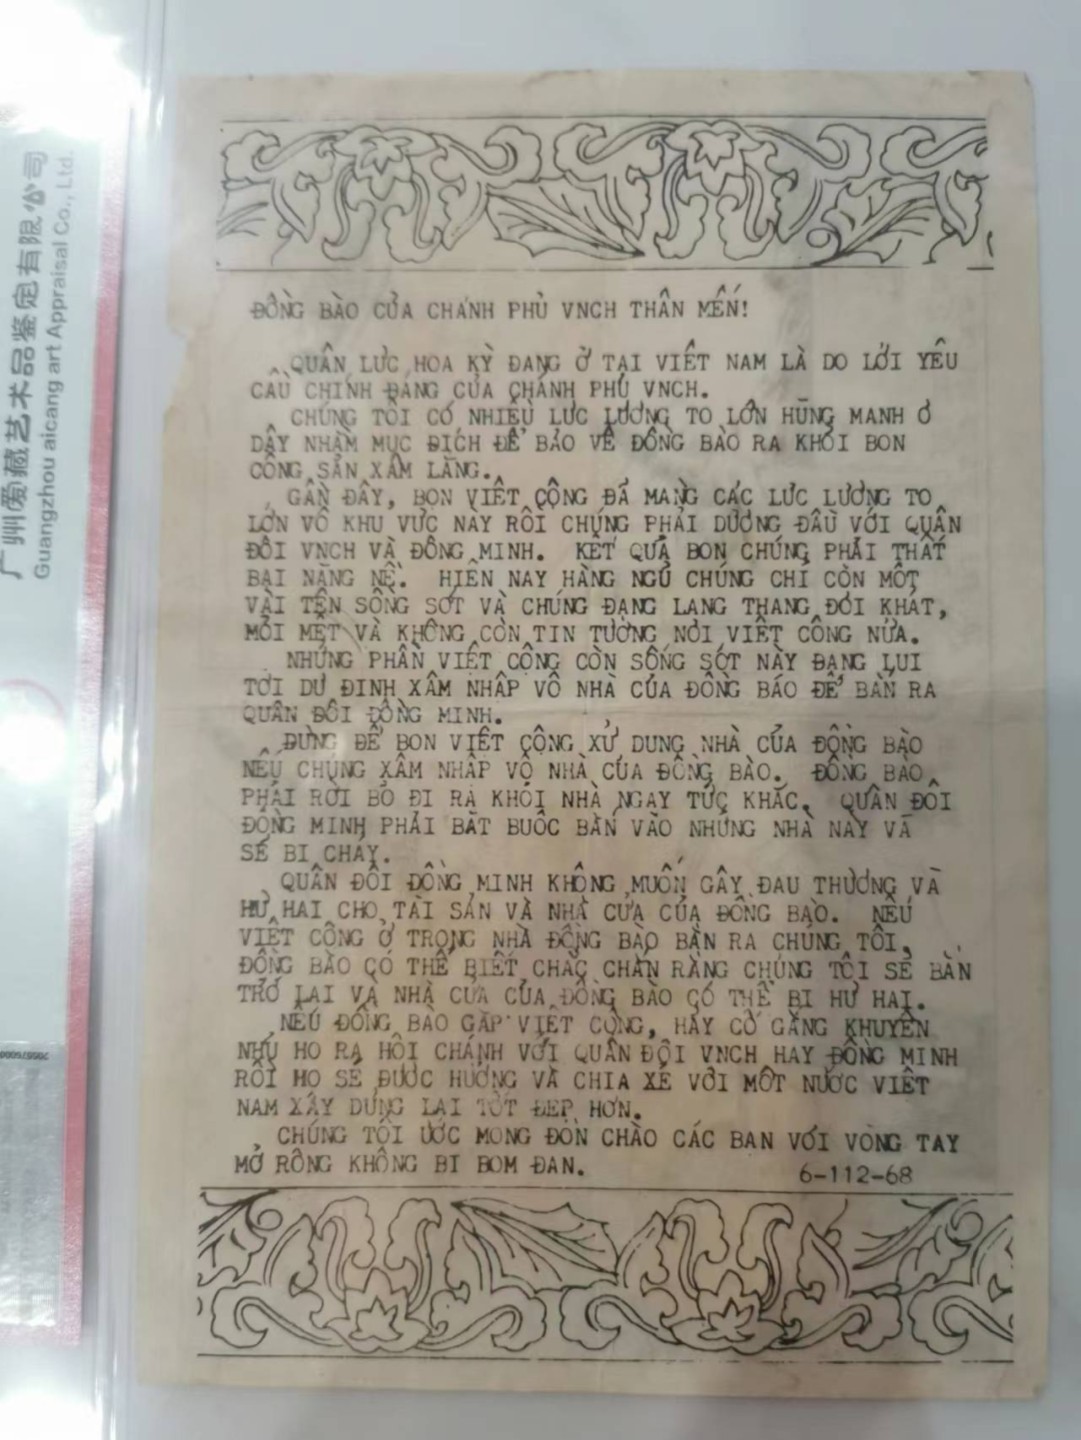 广州爱藏艺术品鉴定有限公司
Guangzhou aicang art Appraisal Co., Ltd.
ĐỒNG BÀO CỦA CHÁNH PHỦ VNCH THÂN MẾN!
QUÂN LỰC HOA KỲ ĐANG Ở TẠI VIỆT NAM LÀ DO LỜI YÊU
CẦU CHÍNH ĐÁNG CỦA CHÁNH PHỦ VNCH.
CHÚNG TÔI CÓ NHIỀU LỰC LƯỢNG TO LỚN HÙNG MẠNH Ở
ĐÂY NHẰM MỤC ĐÍCH ĐỂ BẢO VỆ ĐỒNG BÀO RA KHỎI BỌN
CỘNG SẢN XÂM LĂNG.
GẦN ĐÂY, BỌN VIỆT CỘNG ĐÃ MANG CÁC LỰC LƯỢNG TO
LỚN VÔ KHU VỰC NÀY RỒI CHÚNG PHẢI ĐƯƠNG ĐẦU VỚI QUÂN
ĐỘI VNCH VÀ ĐỒNG MINH. KẾT QUẢ BỌN CHÚNG PHẢI THẤT
BẠI NẶNG NỀ. HIỆN NAY HÀNG NGŨ CHÚNG CHỈ CÒN MỘT
VÀI TÊN SỐNG SÓT VÀ CHÚNG ĐANG LANG THANG ĐÓI KHÁT,
MỎI MỆT VÀ KHÔNG CÒN TIN TƯỞNG NƠI VIỆT CỘNG NỮA.
NHỮNG PHẦN VIỆT CỘNG CÒN SỐNG SÓT NÀY ĐANG LUI
TỚI DỰ ĐỊNH XÂM NHẬP VÔ NHÀ CỦA ĐỒNG BÀO ĐỂ BẮN RA
QUÂN ĐỘI ĐỒNG MINH.
ĐỪNG ĐỂ BỌN VIỆT CỘNG XỬ DỤNG NHÀ CỦA ĐỒNG BÀO
NẾU CHÚNG XÂM NHẬP VÔ NHÀ CỦA ĐỒNG BÀO. ĐỒNG BÀO
PHẢI RỜI BỎ ĐI RA KHỎI NHÀ NGAY TỨC KHẮC. QUÂN ĐỘI
ĐỒNG MINH PHẢI BẮT BUỘC BẮN VÀO NHỮNG NHÀ NÀY VÀ
SẼ BỊ CHÁY.
QUÂN ĐỘI ĐỒNG MINH KHÔNG MUỐN GÂY ĐAU THƯƠNG VÀ
HƯ HẠI CHO TÀI SẢN VÀ NHÀ CỬA CỦA ĐỒNG BÀO. NẾU
VIỆT CỘNG Ở TRONG NHÀ ĐỒNG BÀO BẮN RA CHÚNG TÔI,
ĐỒNG BÀO CÓ THỂ BIẾT CHẮC CHẮN RẰNG CHÚNG TÔI SẼ BẮN
TRỞ LẠI VÀ NHÀ CỬA CỦA ĐỒNG BÀO CÓ THỂ BỊ HƯ HẠI.
NẾU ĐỒNG BÀO GẶP VIỆT CỘNG, HÃY CỐ GẮNG KHUYÊN
NHỦ HỌ RA HỒI CHÁNH VỚI QUÂN ĐỘI VNCH HAY ĐỒNG MINH
RỒI HỌ SẼ ĐƯỢC HƯỞNG VÀ CHIA XẺ VỚI MỘT NƯỚC VIỆT
NAM XÂY DỰNG LẠI TỐT ĐẸP HƠN.
CHÚNG TÔI ƯỚC MONG ĐÓN CHÀO CÁC BẠN VỚI VÒNG TAY
MỞ RỘNG KHÔNG BỊ BOM ĐẠN.
6-112-68